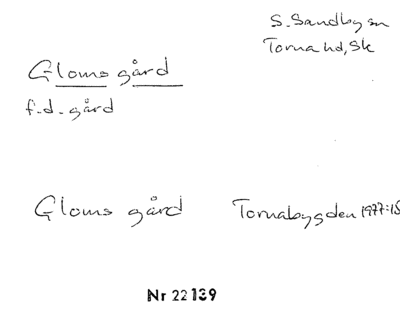 S. Sandby sn
Torna hd, Sk
Gloms gård
f.d. gård
Gloms gård Tornabygden 1977:18
Nr 22139